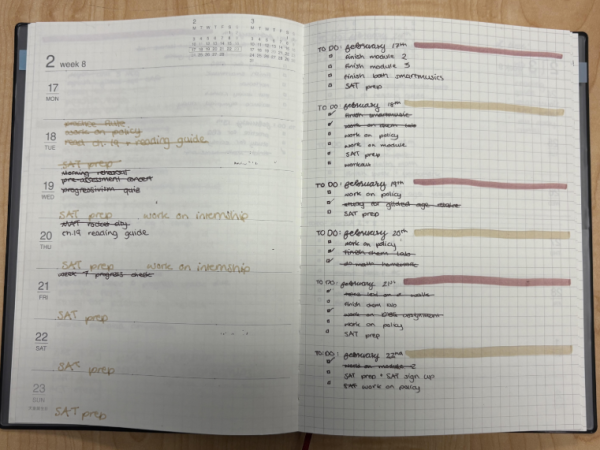 2 week 8
17
MON
practice flute
work on policy
18
TUE
read ch. 19 + reading guide
SAT prep
morning rehearsal
pre-assessment concert
19
WED
progressivism quiz
SAT prep work on internship
20
THU
ch.19 reading guide
SAT prep work on internship
week 7 progress check
21
FRI
SAT prep
22
SAT
SAT prep
23
SUN
SAT prep
TO DO: february 17th
finish module 2
finish module 3
finish both smartmusics
SAT prep
TO DO: february 18th
finish smartmusic
work on chem lab
work on policy
work on module
SAT prep
workout
TO DO: february 19th
work on policy
study for global age
SAT prep
TO DO: february 20th
work on policy
finish chem lab
do math homework
TO DO: february 21st
finish chem lab
work on assignment
work on policy
SAT prep
TO DO: february 22nd
work on module 2
SAT prep + SAT sign up
work on policy